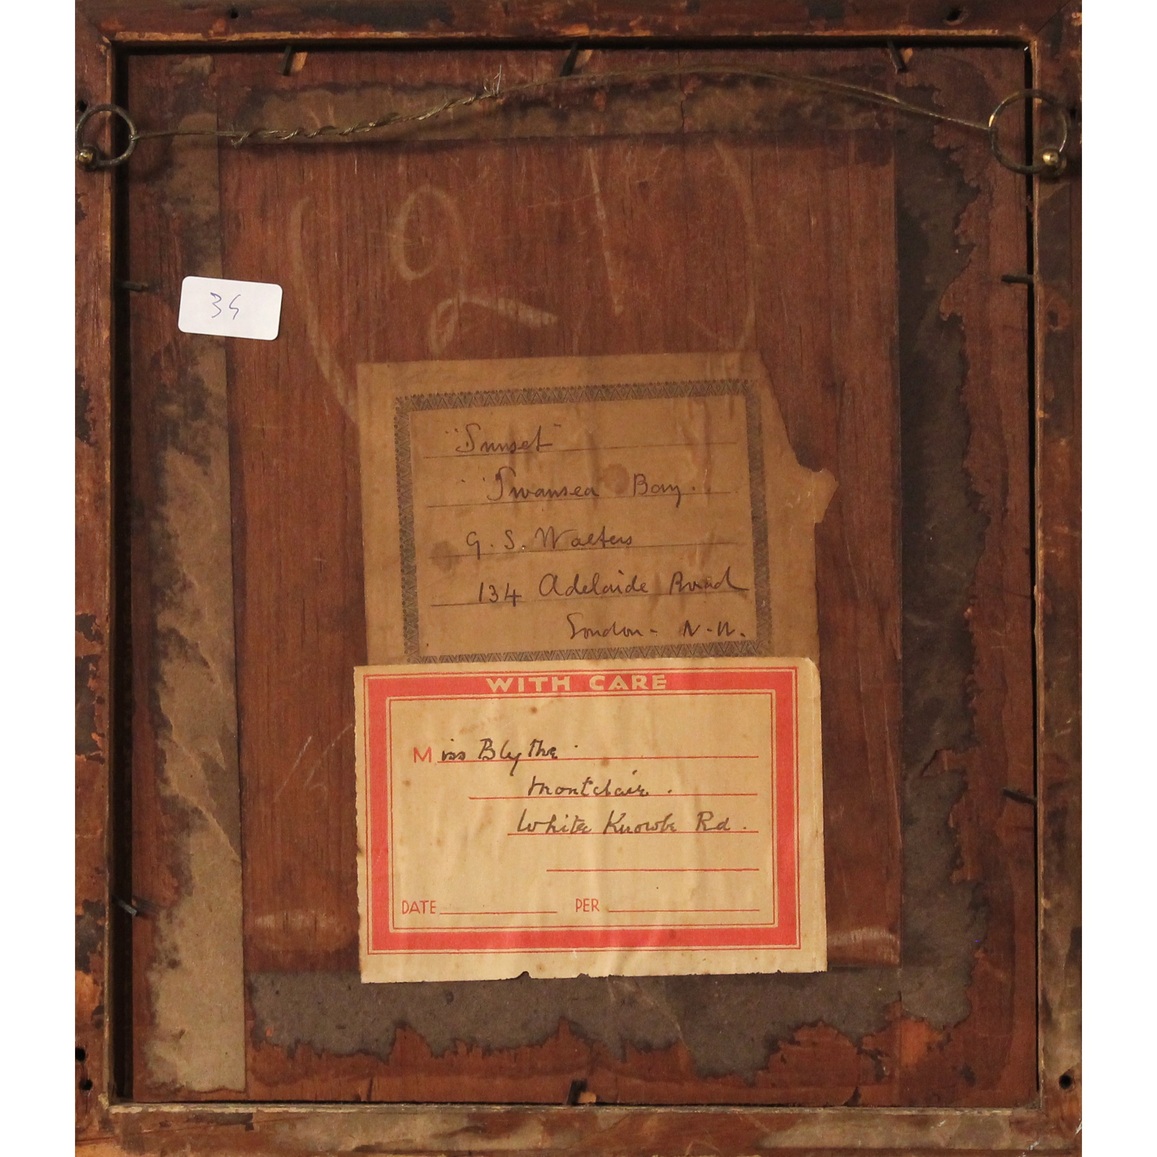 34
"Sunset"
"Swansea Bay.
G. S. Walters
134 Adelaide Road
London - N.W.
WITH CARE
Miss Blythe.
Montclair.
White Knowle Rd.
DATE PER